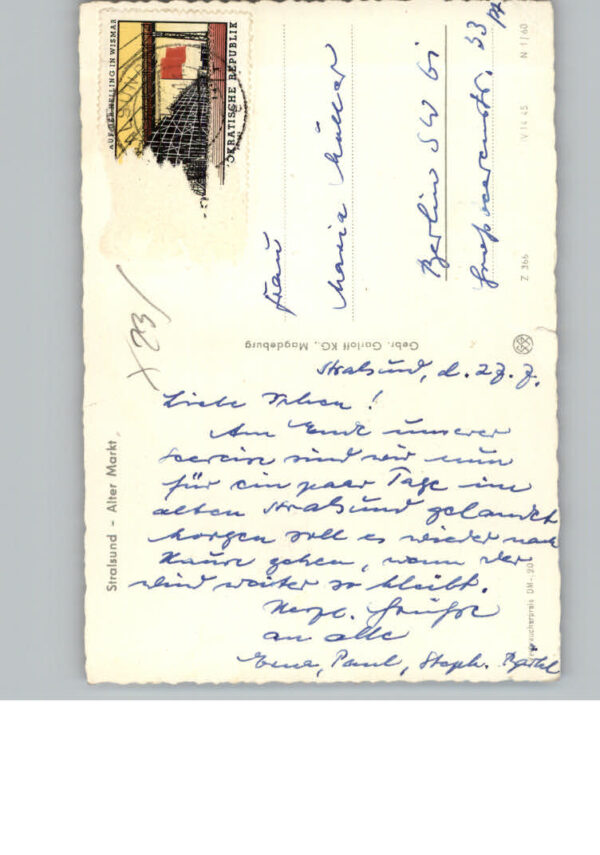 AUF DER HELLING IN WISMAR
OKRATISCHE REPUBLIK
Frau
Maria Müller
Berlin SW 61
Großbeerenstr. 33
N 1/60
IV 14 45
Z 366
X 23/
Gebr. Garloff KG., Magdeburg
Stralsund - Alter Markt
Stralsund, d. 27. 7.
Liebe !
Am Ende unserer
sind wir nun
für ein paar Tage im
alten Stralsund gelandet
Morgen soll es wieder nach
Hause gehen, wenn der
Wind weiter so bleibt.
Herzl. Grüße
an alle
Paul, Steph.
braucherpreis DM -,20